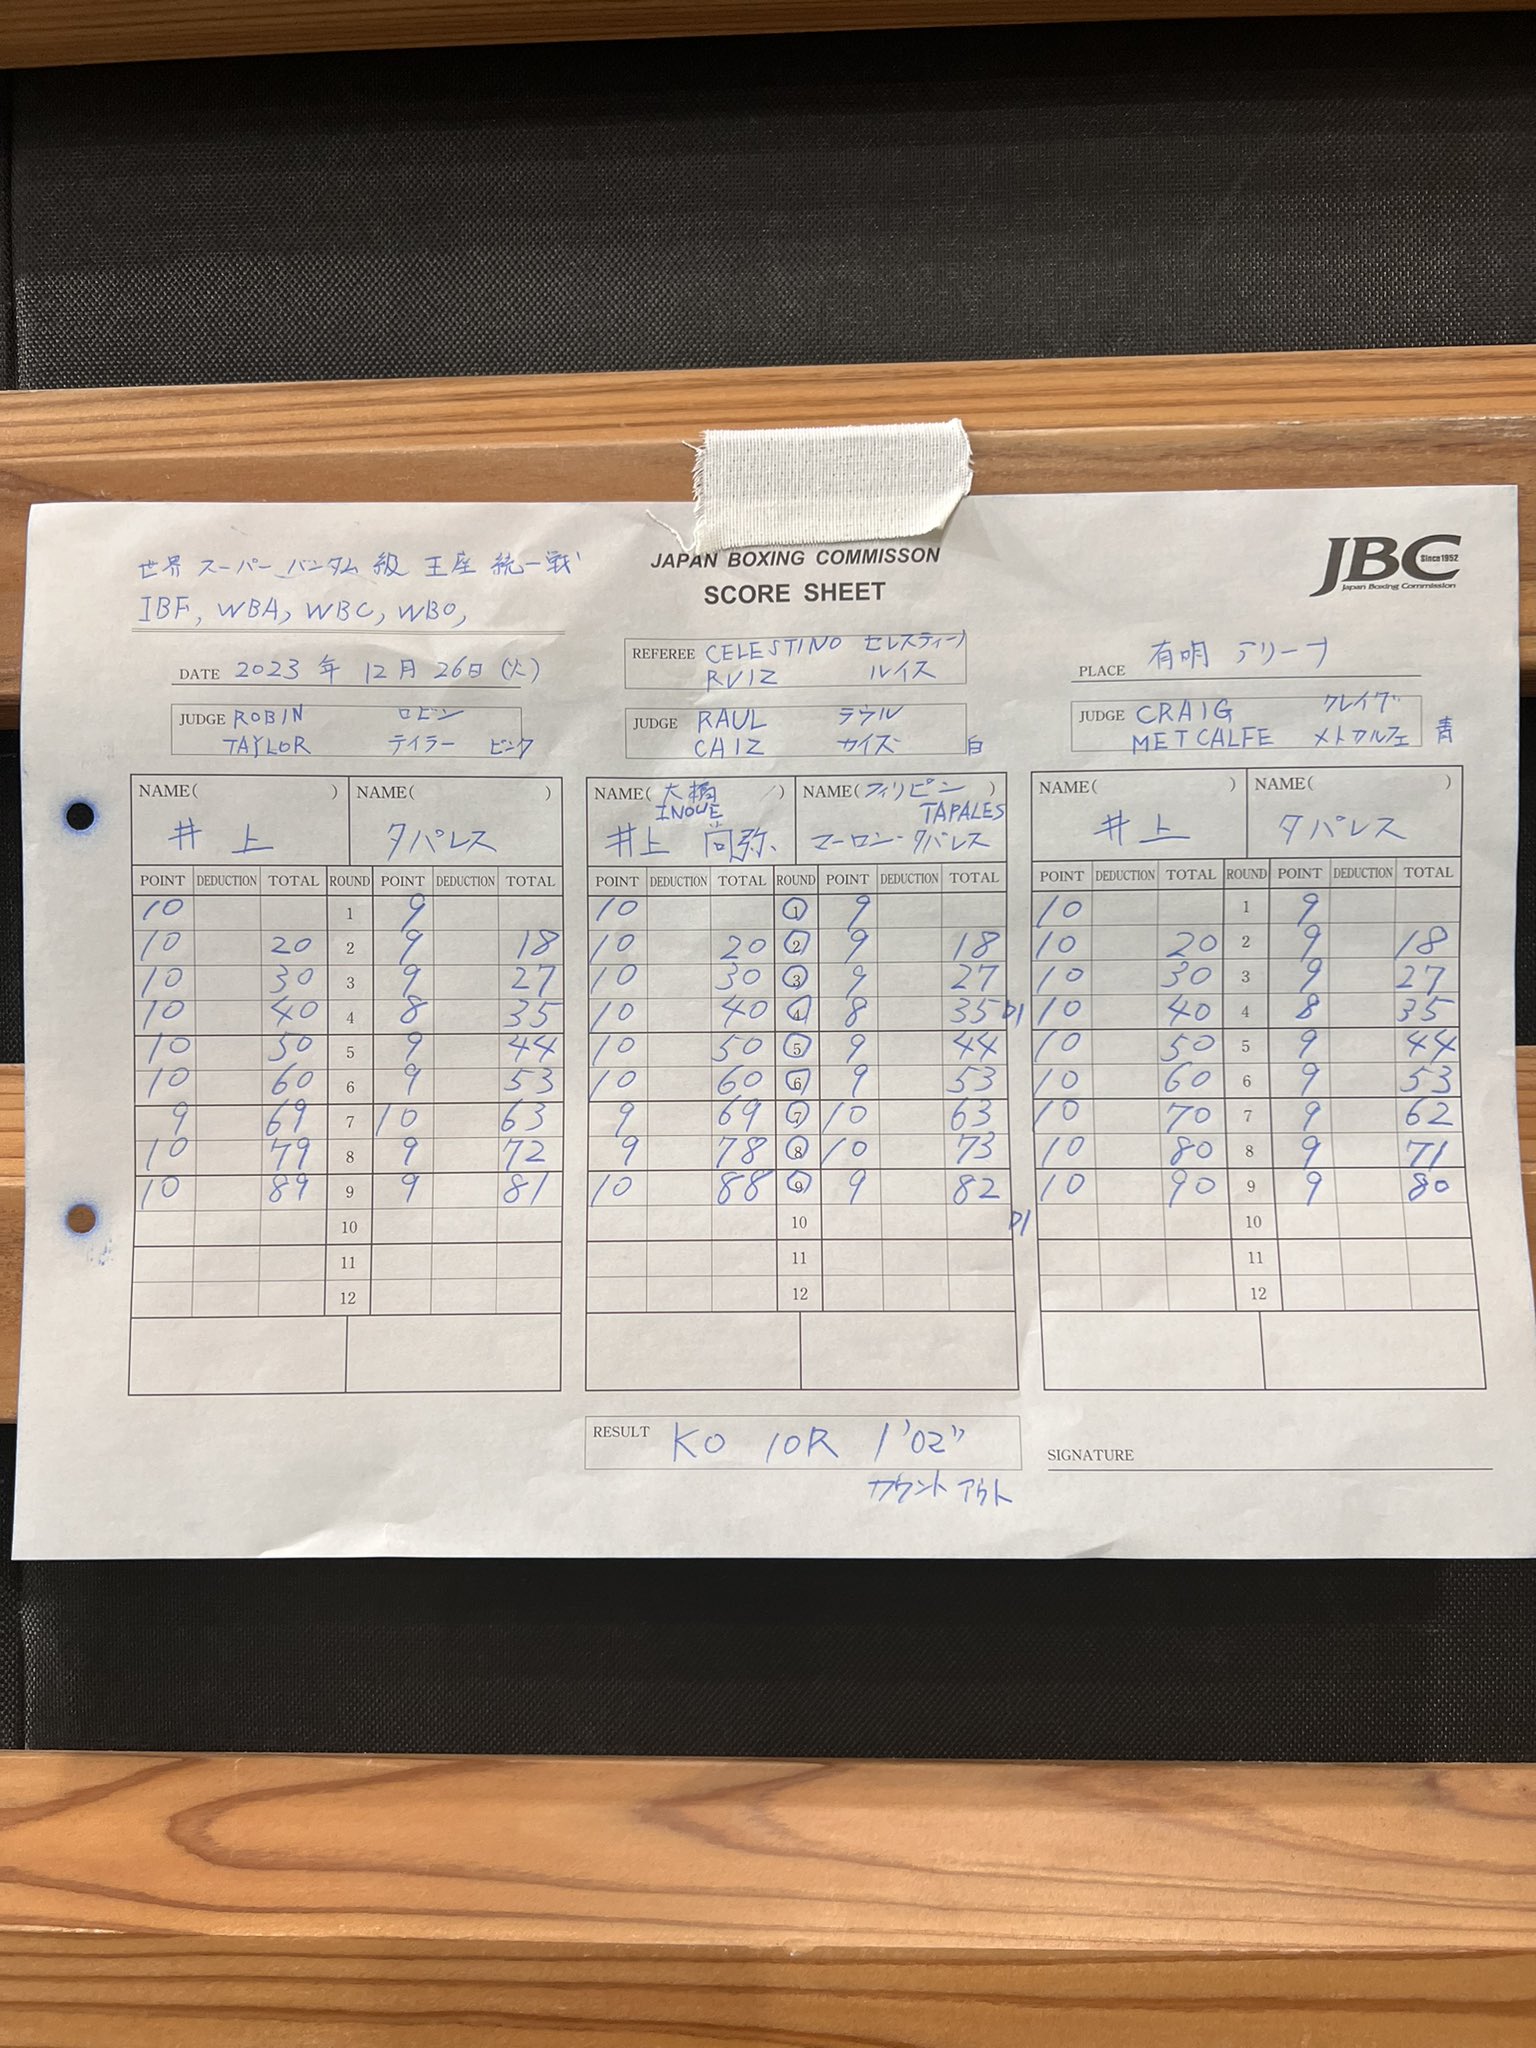 世界 スーパーバンタム級 王座 統一戦
IBF, WBA, WBC, WBO,
JAPAN BOXING COMMISSON
SCORE SHEET
JBC Since1952
Japan Boxing Commission
DATE 2023年 12月 26日 (火)
REFEREE CELESTINO セレスティーノ
RUIZ ルイス
PLACE 有明 アリーナ
JUDGE ROBIN ロビン
TAYLOR テイラー ピンク
JUDGE RAUL ラウル
CAIZ カイズ 白
JUDGE CRAIG クレイグ
METCALFE メトカルフェ 青
NAME( ) NAME( )
井上 タパレス
NAME( 大橋 ) NAME( フィリピン )
INOUE TAPALES
井上 尚弥 マーロン・タパレス
NAME( ) NAME( )
井上 タパレス
POINT DEDUCTION TOTAL ROUND POINT DEDUCTION TOTAL
10 1 9
10 20 2 9 18
10 30 3 9 27
10 40 4 8 35
10 50 5 9 44
10 60 6 9 53
9 69 7 10 63
10 79 8 9 72
10 89 9 9 81
10
11
12
POINT DEDUCTION TOTAL ROUND POINT DEDUCTION TOTAL
10 1 9
10 20 2 9 18
10 30 3 9 27
10 40 4 8 35 D1
10 50 5 9 44
10 60 6 9 53
9 69 7 10 63
9 78 8 10 73
10 88 9 9 82
10 D1
11
12
POINT DEDUCTION TOTAL ROUND POINT DEDUCTION TOTAL
10 1 9
10 20 2 9 18
10 30 3 9 27
10 40 4 8 35
10 50 5 9 44
10 60 6 9 53
10 70 7 9 62
10 80 8 9 71
10 90 9 9 80
10
11
12
RESULT KO 10R 1'02"
カウント アウト
SIGNATURE